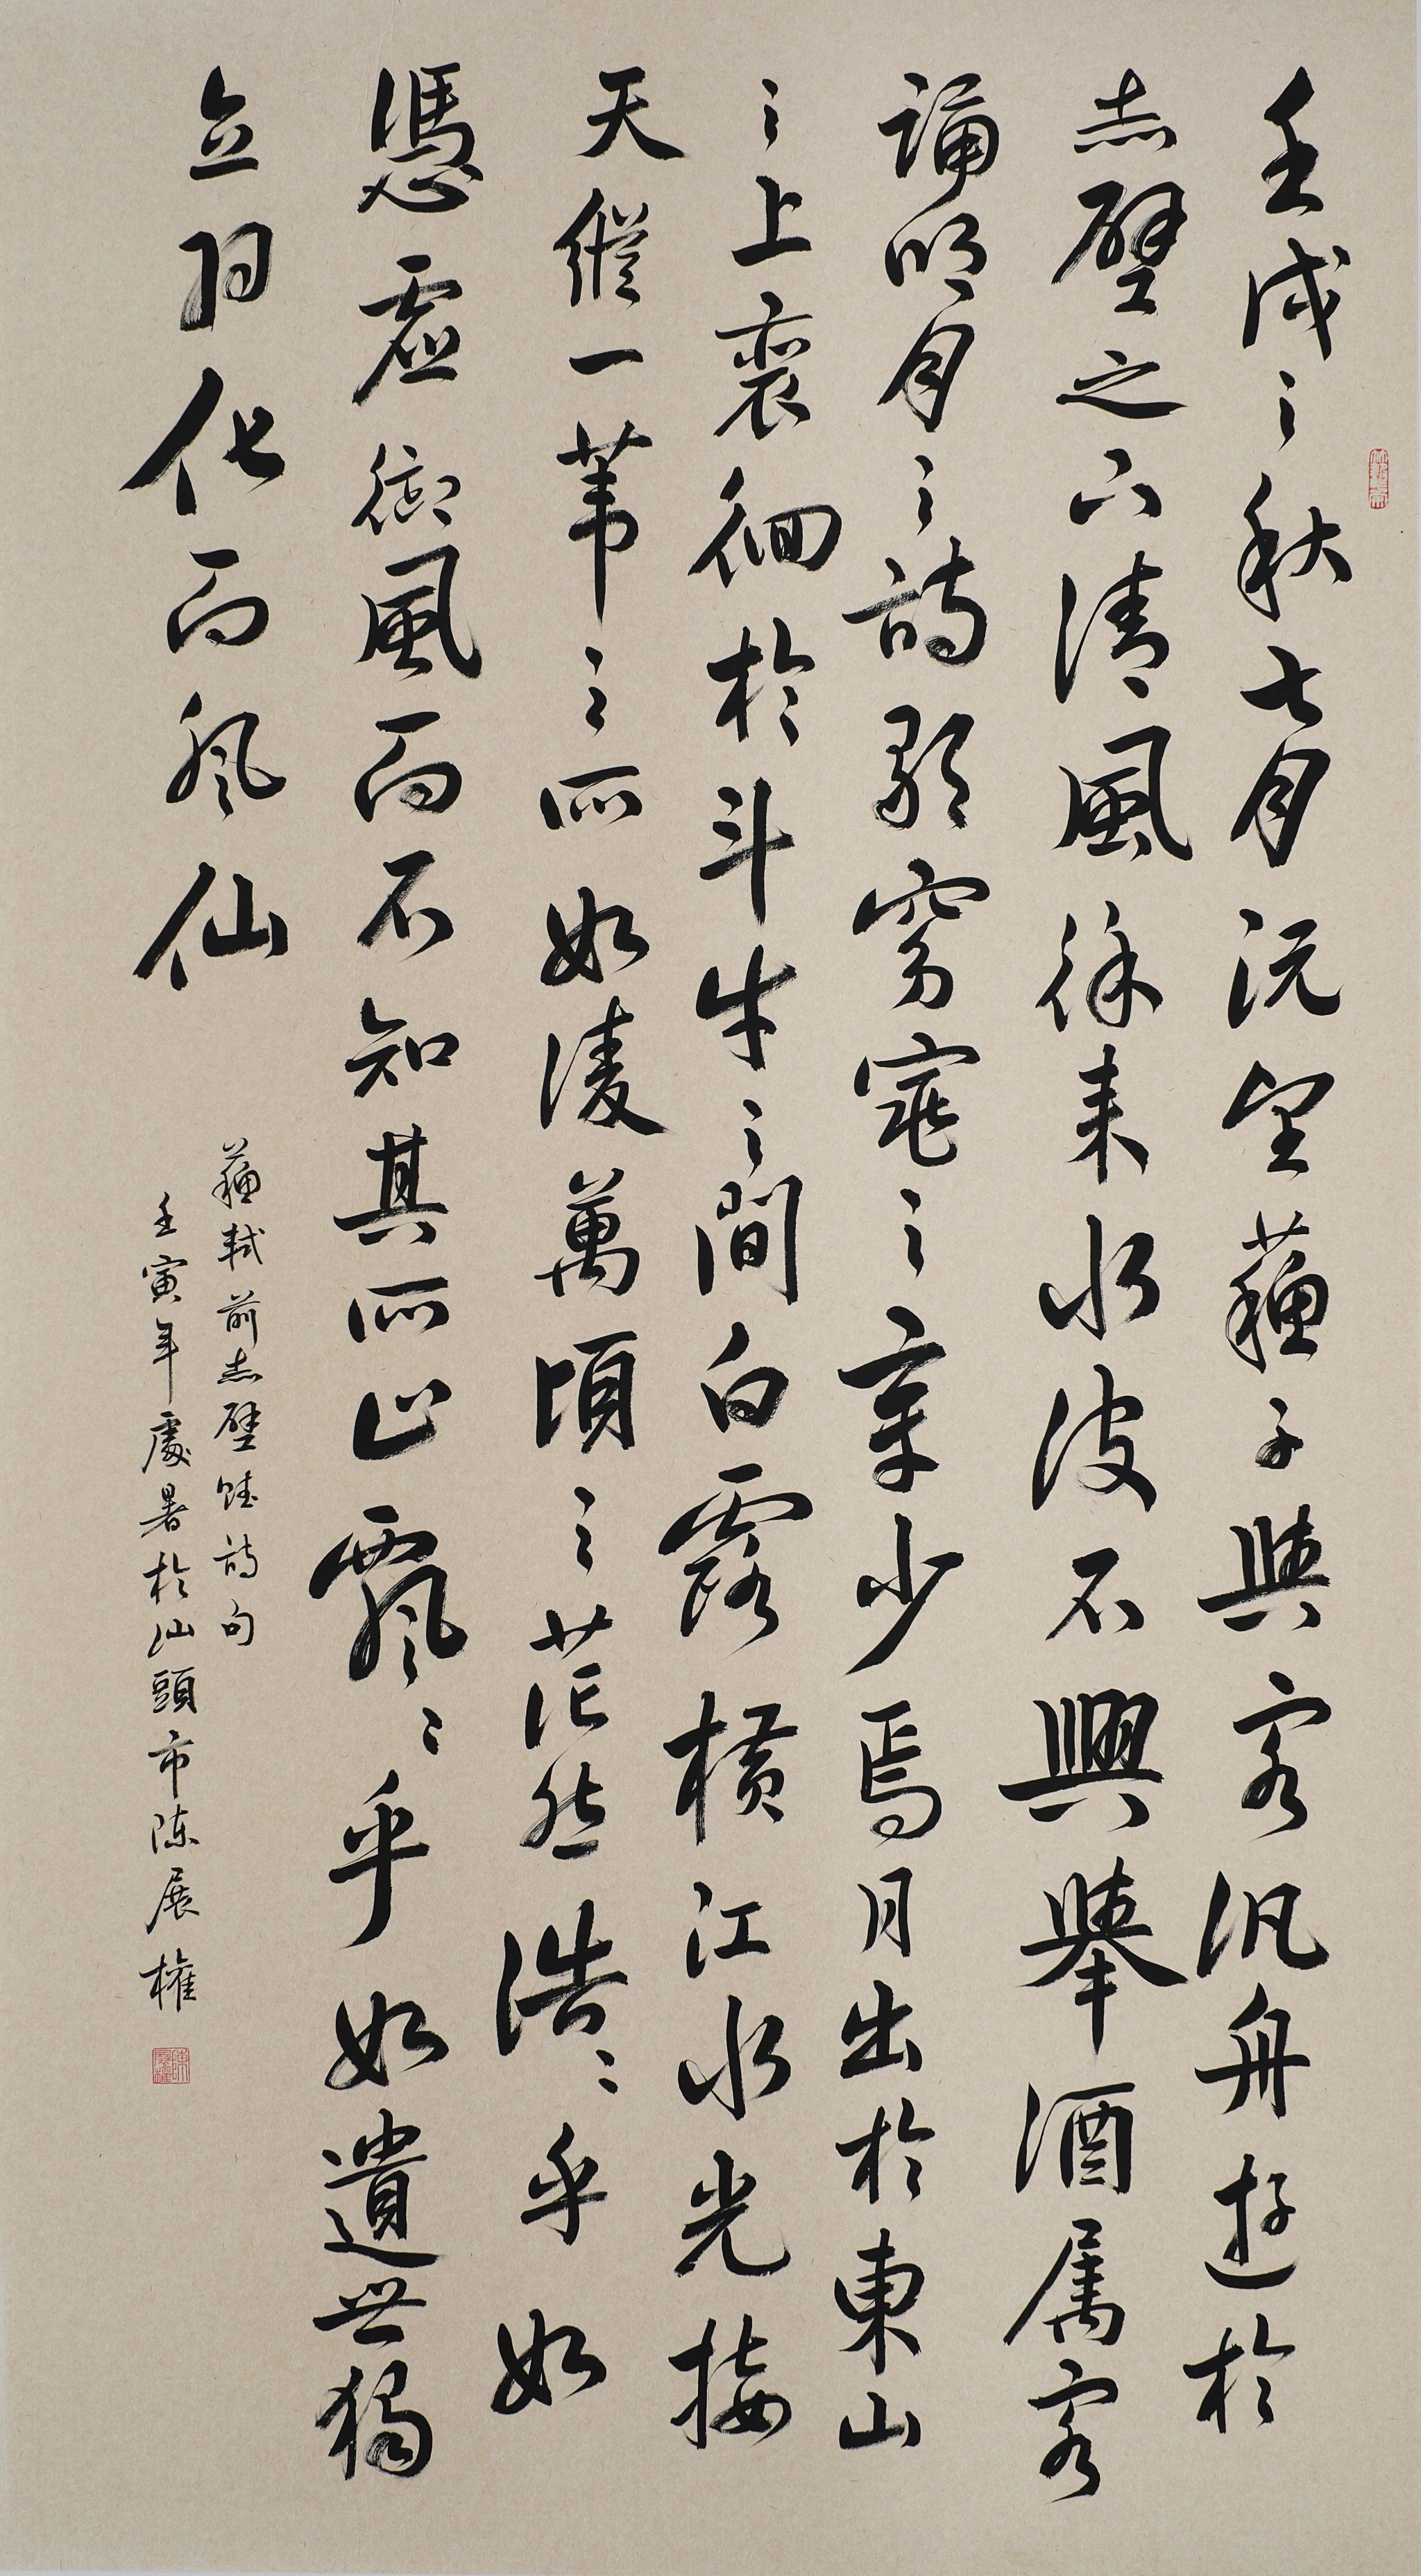 壬戌之秋七月既望蘇子與客汎舟遊於
赤壁之下清風徐来水波不興舉酒属客
誦明月之詩歌窈窕之章少焉月出於東山
之上裵徊於斗牛之間白露横江水光接
天縱一葦之所如淩萬頃之茫然浩〻乎如
憑虚御風而不知其所止飄〻乎如遺世獨
立羽化而風仙
蘇軾前赤壁賦詩句
壬寅年處暑於汕頭市陳展權